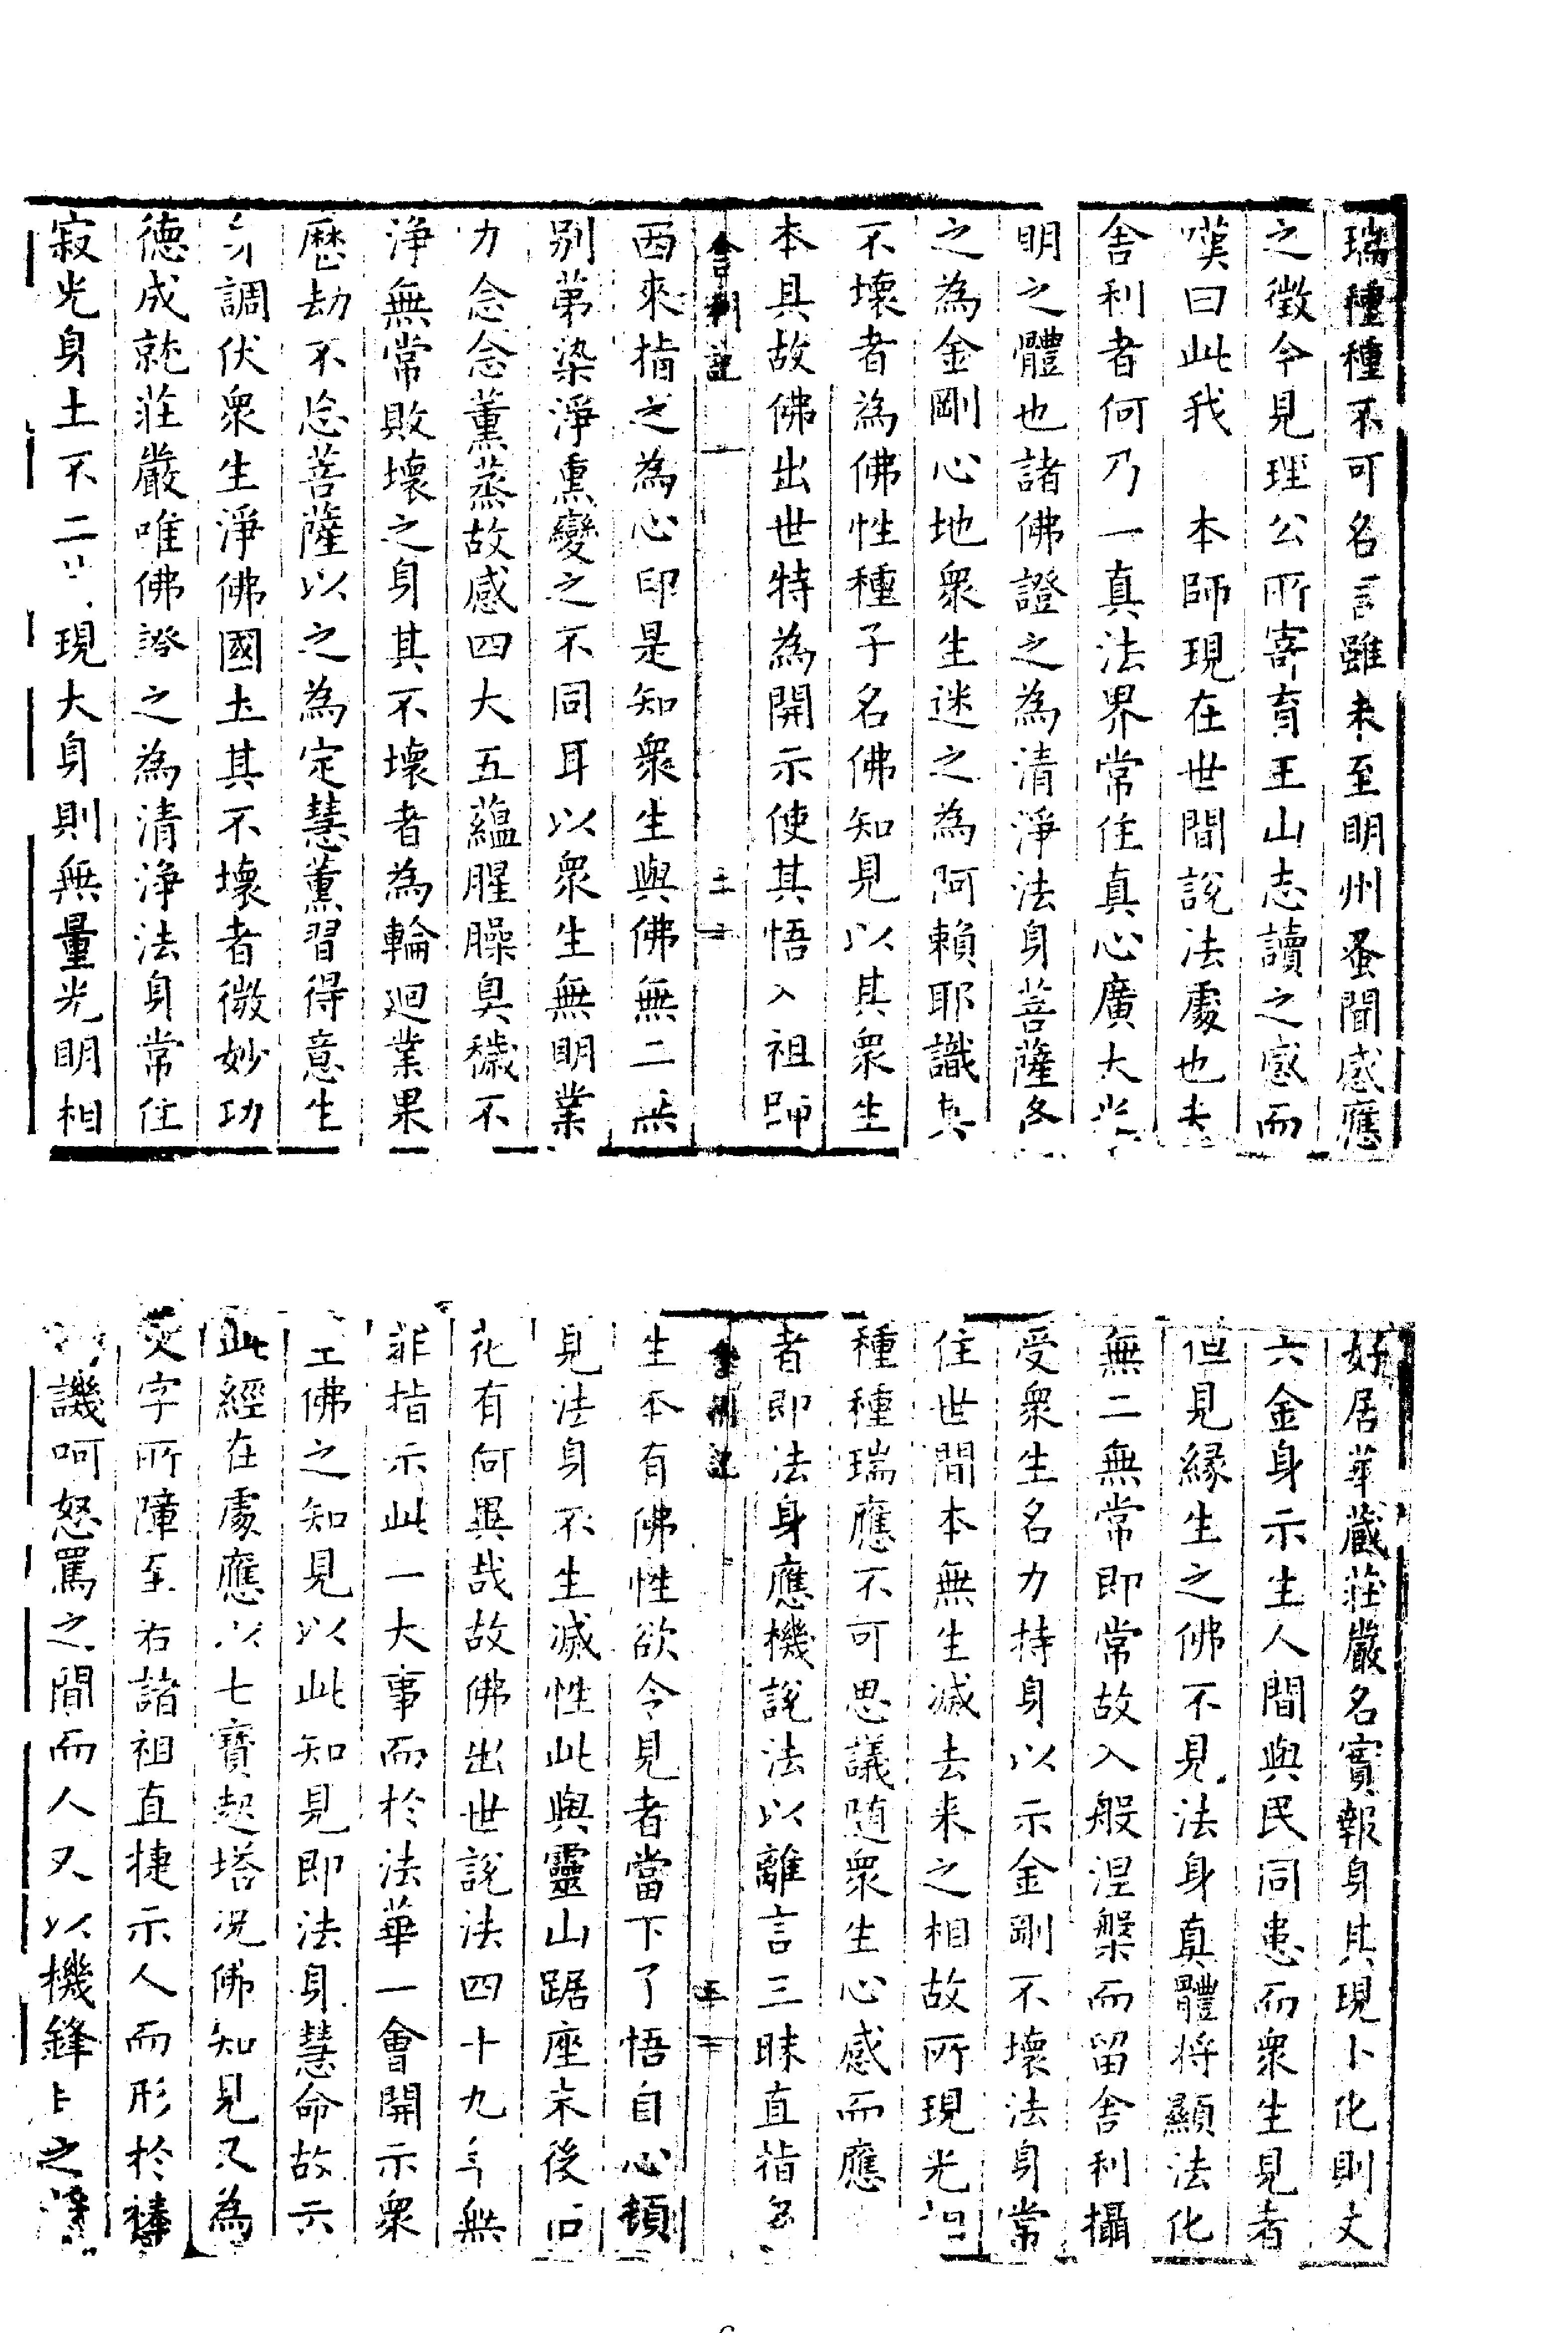 瑞種種不可名言雖未至明州蚤聞感應
之徵今見理公所寄育王山志讀之感而
嘆曰此我 本師現在世間說法處也夫
舍利者何乃一真法界常住真心廣大光
明之體也諸佛證之為清淨法身菩薩名
之為金剛心地眾生迷之為阿賴耶識其
不壞者為佛性種子名佛知見以其眾生
本具故佛出世特為開示使其悟入祖師
舍利記
西來指之為心印是知眾生與佛無二無
別第染淨熏變之不同耳以眾生無明業
力念念薰蒸故感四大五蘊腥臊臭穢不
淨無常敗壞之身其不壞者為輪迴業果
歷劫不忘菩薩以之為定慧薰習得意生
身調伏眾生淨佛國土其不壞者微妙功
德成就莊嚴唯佛證之為清淨法身常住
寂光身土不二 現大身則無量光明相
好居華藏莊嚴名實報身其現小化則丈
六金身示生人間與民同患而眾生見者
但見緣生之佛不見法身真體將顯法化
無二無常即常故入般涅槃而留舍利攝
受眾生名力持身以示金剛不壞法身常
住世間本無生滅去來之相故所現光相
種種瑞應不可思議隨眾生心感而應
者即法身應機說法以離言三昧直指
舍利記
生本有佛性欲令見者當下了悟自心頓
見法身不生滅性此與靈山踞座末後
花有何異哉故佛出世說法四十九年無
非指示此一大事而於法華一會開示眾
生佛之知見以此知見即法身慧命故云
此經在處應以七寶起塔況佛知見又為
文字所障至右諸祖直捷示人而形於棒
譏呵怒罵之間而人又以機鋒 之